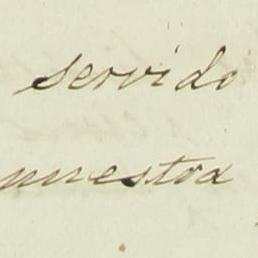 servido
muestra